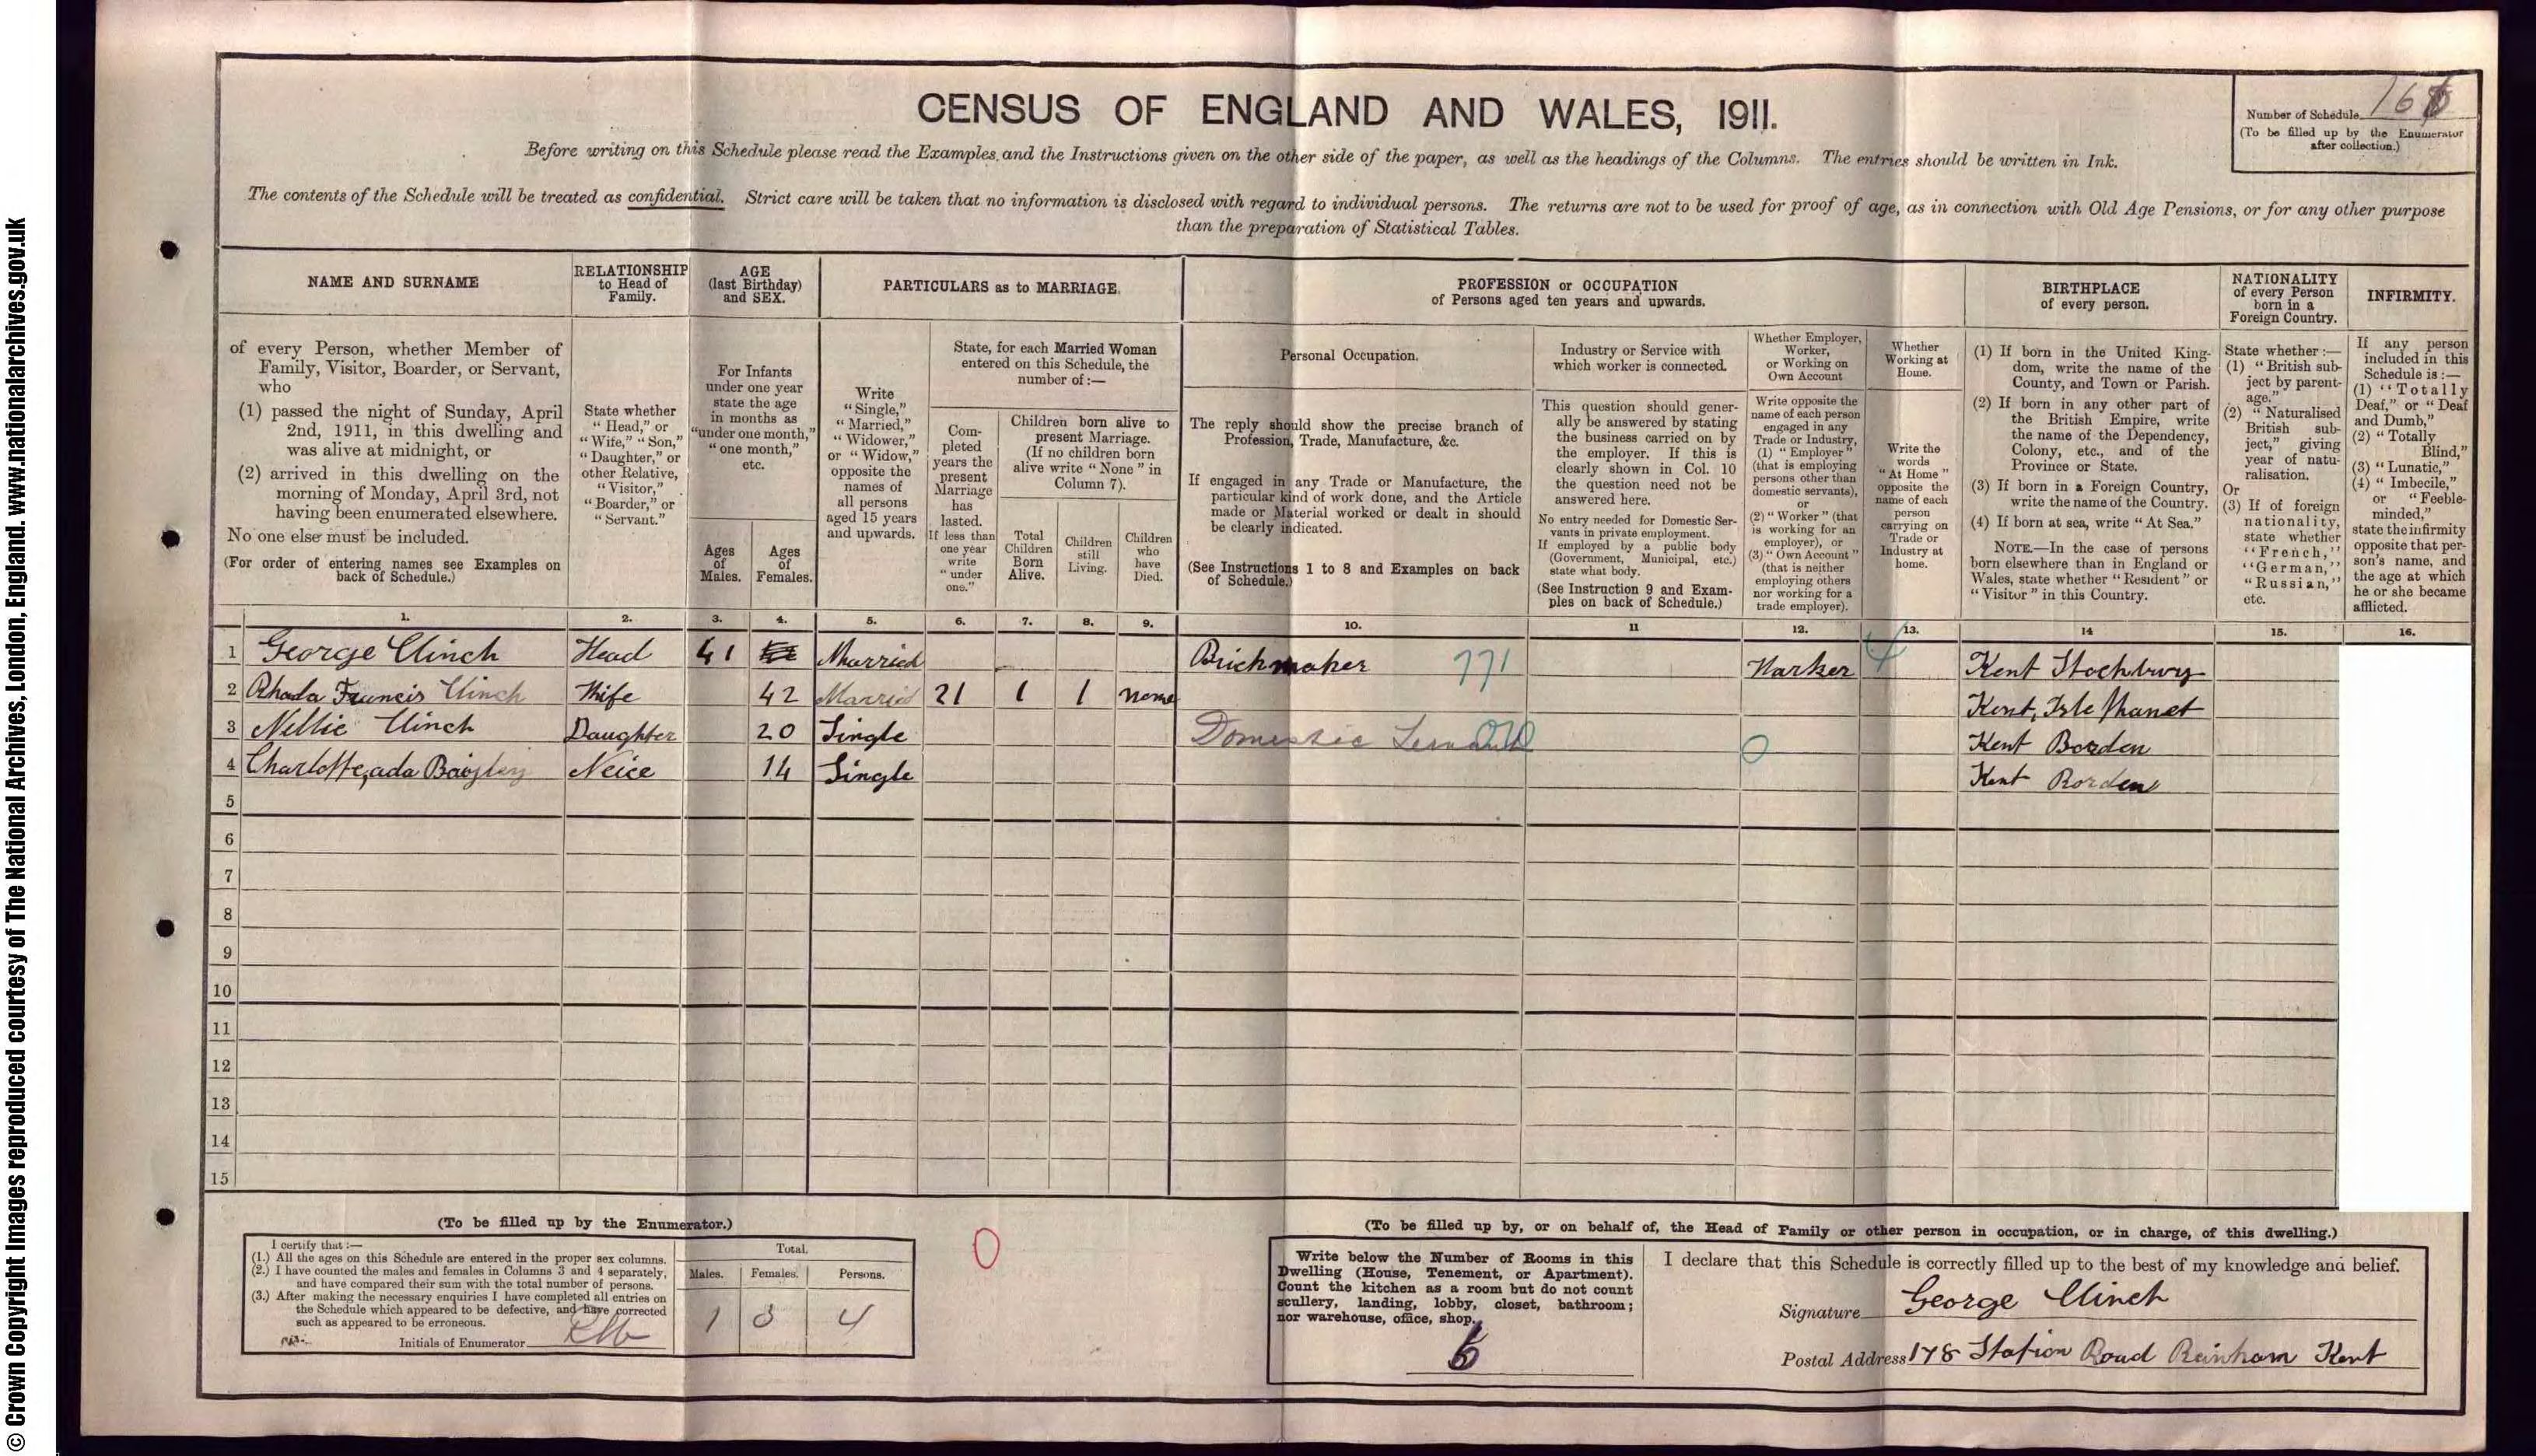 © Crown Copyright Images reproduced courtesy of The National Archives, London, England. www.nationalarchives.gov.uk
CENSUS OF ENGLAND AND WALES, 1911.
Number of Schedule
(To be filled up by the Enumerator
after collection.)
Before writing on this Schedule please read the Examples and the Instructions given on the other side of the paper, as well as the headings of the Columns. The entries should be written in Ink.
The contents of the Schedule will be treated as confidential. Strict care will be taken that no information is disclosed with regard to individual persons. The returns are not to be used for proof of age, as in connection with Old Age Pensions, or for any other purpose
than the preparation of Statistical Tables.
NAME AND SURNAME
of every Person, whether Member of
Family, Visitor, Boarder, or Servant,
who
(1) passed the night of Sunday, April
2nd, 1911, in this dwelling and
was alive at midnight, or
(2) arrived in this dwelling on the
morning of Monday, April 3rd, not
having been enumerated elsewhere.
No one else must be included.
(For order of entering names see Examples on
back of Schedule.)
RELATIONSHIP
to Head of
Family.
State whether
"Head," or
"Wife," "Son,"
"Daughter," or
other Relative,
"Visitor,"
"Boarder," or
"Servant."
AGE
(last Birthday)
and SEX.
For Infants
under one year
state the age
in months as
"under one month,"
"one month,"
etc.
Ages
of
Males.
Ages
of
Females.
PARTICULARS as to MARRIAGE.
Write
"Single,"
"Married,"
"Widower,"
or "Widow,"
opposite the
names of
all persons
aged 15 years
and upwards.
State, for each Married Woman
entered on this Schedule, the
number of :—
Com-
pleted
years the
present
Marriage
has
lasted.
If less than
one year
write
"under
one."
Children born alive to
present Marriage.
(If no children born
alive write "None" in
Column 7).
Total
Children
Born
Alive.
Children
still
Living.
Children
who
have
Died.
PROFESSION or OCCUPATION
of Persons aged ten years and upwards.
Personal Occupation.
The reply should show the precise branch of
Profession, Trade, Manufacture, &c.
If engaged in any Trade or Manufacture, the
particular kind of work done, and the Article
made or Material worked or dealt in should
be clearly indicated.
(See Instructions 1 to 8 and Examples on back
of Schedule.)
Industry or Service with
which worker is connected.
This question should gener-
ally be answered by stating
the business carried on by
the employer. If this is
clearly shown in Col. 10
the question need not be
answered here.
No entry needed for Domestic Ser-
vants in private employment.
If employed by a public body
(Government, Municipal, etc.)
state what body.
(See Instruction 9 and Exam-
ples on back of Schedule.)
Whether Employer,
Worker,
or Working on
Own Account
Write opposite the
name of each person
engaged in any
Trade or Industry,
(1) "Employer"
(that is employing
persons other than
domestic servants),
or
(2) "Worker" (that
is working for an
employer), or
(3) "Own Account"
(that is neither
employing others
nor working for a
trade employer).
Whether
Working at
Home.
Write the
words
"At Home"
opposite the
name of each
person
carrying on
Trade or
Industry at
home.
BIRTHPLACE
of every person.
(1) If born in the United King-
dom, write the name of the
County, and Town or Parish.
(2) If born in any other part of
the British Empire, write
the name of the Dependency,
Colony, etc., and of the
Province or State.
(3) If born in a Foreign Country,
write the name of the Country.
(4) If born at sea, write "At Sea."
NOTE.—In the case of persons
born elsewhere than in England or
Wales, state whether "Resident" or
"Visitor" in this Country.
NATIONALITY
of every Person
born in a
Foreign Country.
State whether :—
(1) "British sub-
ject by parent-
age."
(2) "Naturalised
British sub-
ject," giving
year of natu-
ralisation.
Or
(3) If of foreign
nationality,
state whether
"French,"
"German,"
"Russian,"
etc.
INFIRMITY.
If any person
included in this
Schedule is :—
(1) "Totally
Deaf," or "Deaf
and Dumb,"
(2) "Totally
Blind,"
(3) "Lunatic,"
(4) "Imbecile,"
or "Feeble-
minded,"
state the infirmity
opposite that per-
son's name, and
the age at which
he or she became
afflicted.
1. 2. 3. 4. 5. 6. 7. 8. 9. 10. 11 12. 13. 14 15. 16.
1 George Clinch Head 41 Married Brickmaker 771 Worker Kent Stockbury
2 Rhoda Francis Clinch Wife 42 Married 21 1 1 none Kent, Isle Thanet
3 Nellie Clinch Daughter 20 Single Domestic Servant 0 Kent Borden
4 Charlotte, ada Neice 14 Single Kent Borden
5
6
7
8
9
10
11
12
13
14
15
(To be filled up by the Enumerator.)
I certify that :—
(1.) All the ages on this Schedule are entered in the proper sex columns.
(2.) I have counted the males and females in Columns 3 and 4 separately,
and have compared their sum with the total number of persons.
(3.) After making the necessary enquiries I have completed all entries on
the Schedule which appeared to be defective, and have corrected
such as appeared to be erroneous.
Initials of Enumerator
Total.
Males. Females. Persons.
1 3 4
0
(To be filled up by, or on behalf of, the Head of Family or other person in occupation, or in charge, of this dwelling.)
Write below the Number of Rooms in this
Dwelling (House, Tenement, or Apartment).
Count the kitchen as a room but do not count
scullery, landing, lobby, closet, bathroom;
nor warehouse, office, shop.
I declare that this Schedule is correctly filled up to the best of my knowledge and belief.
Signature George Clinch
Postal Address 178 Station Road Rainham Kent